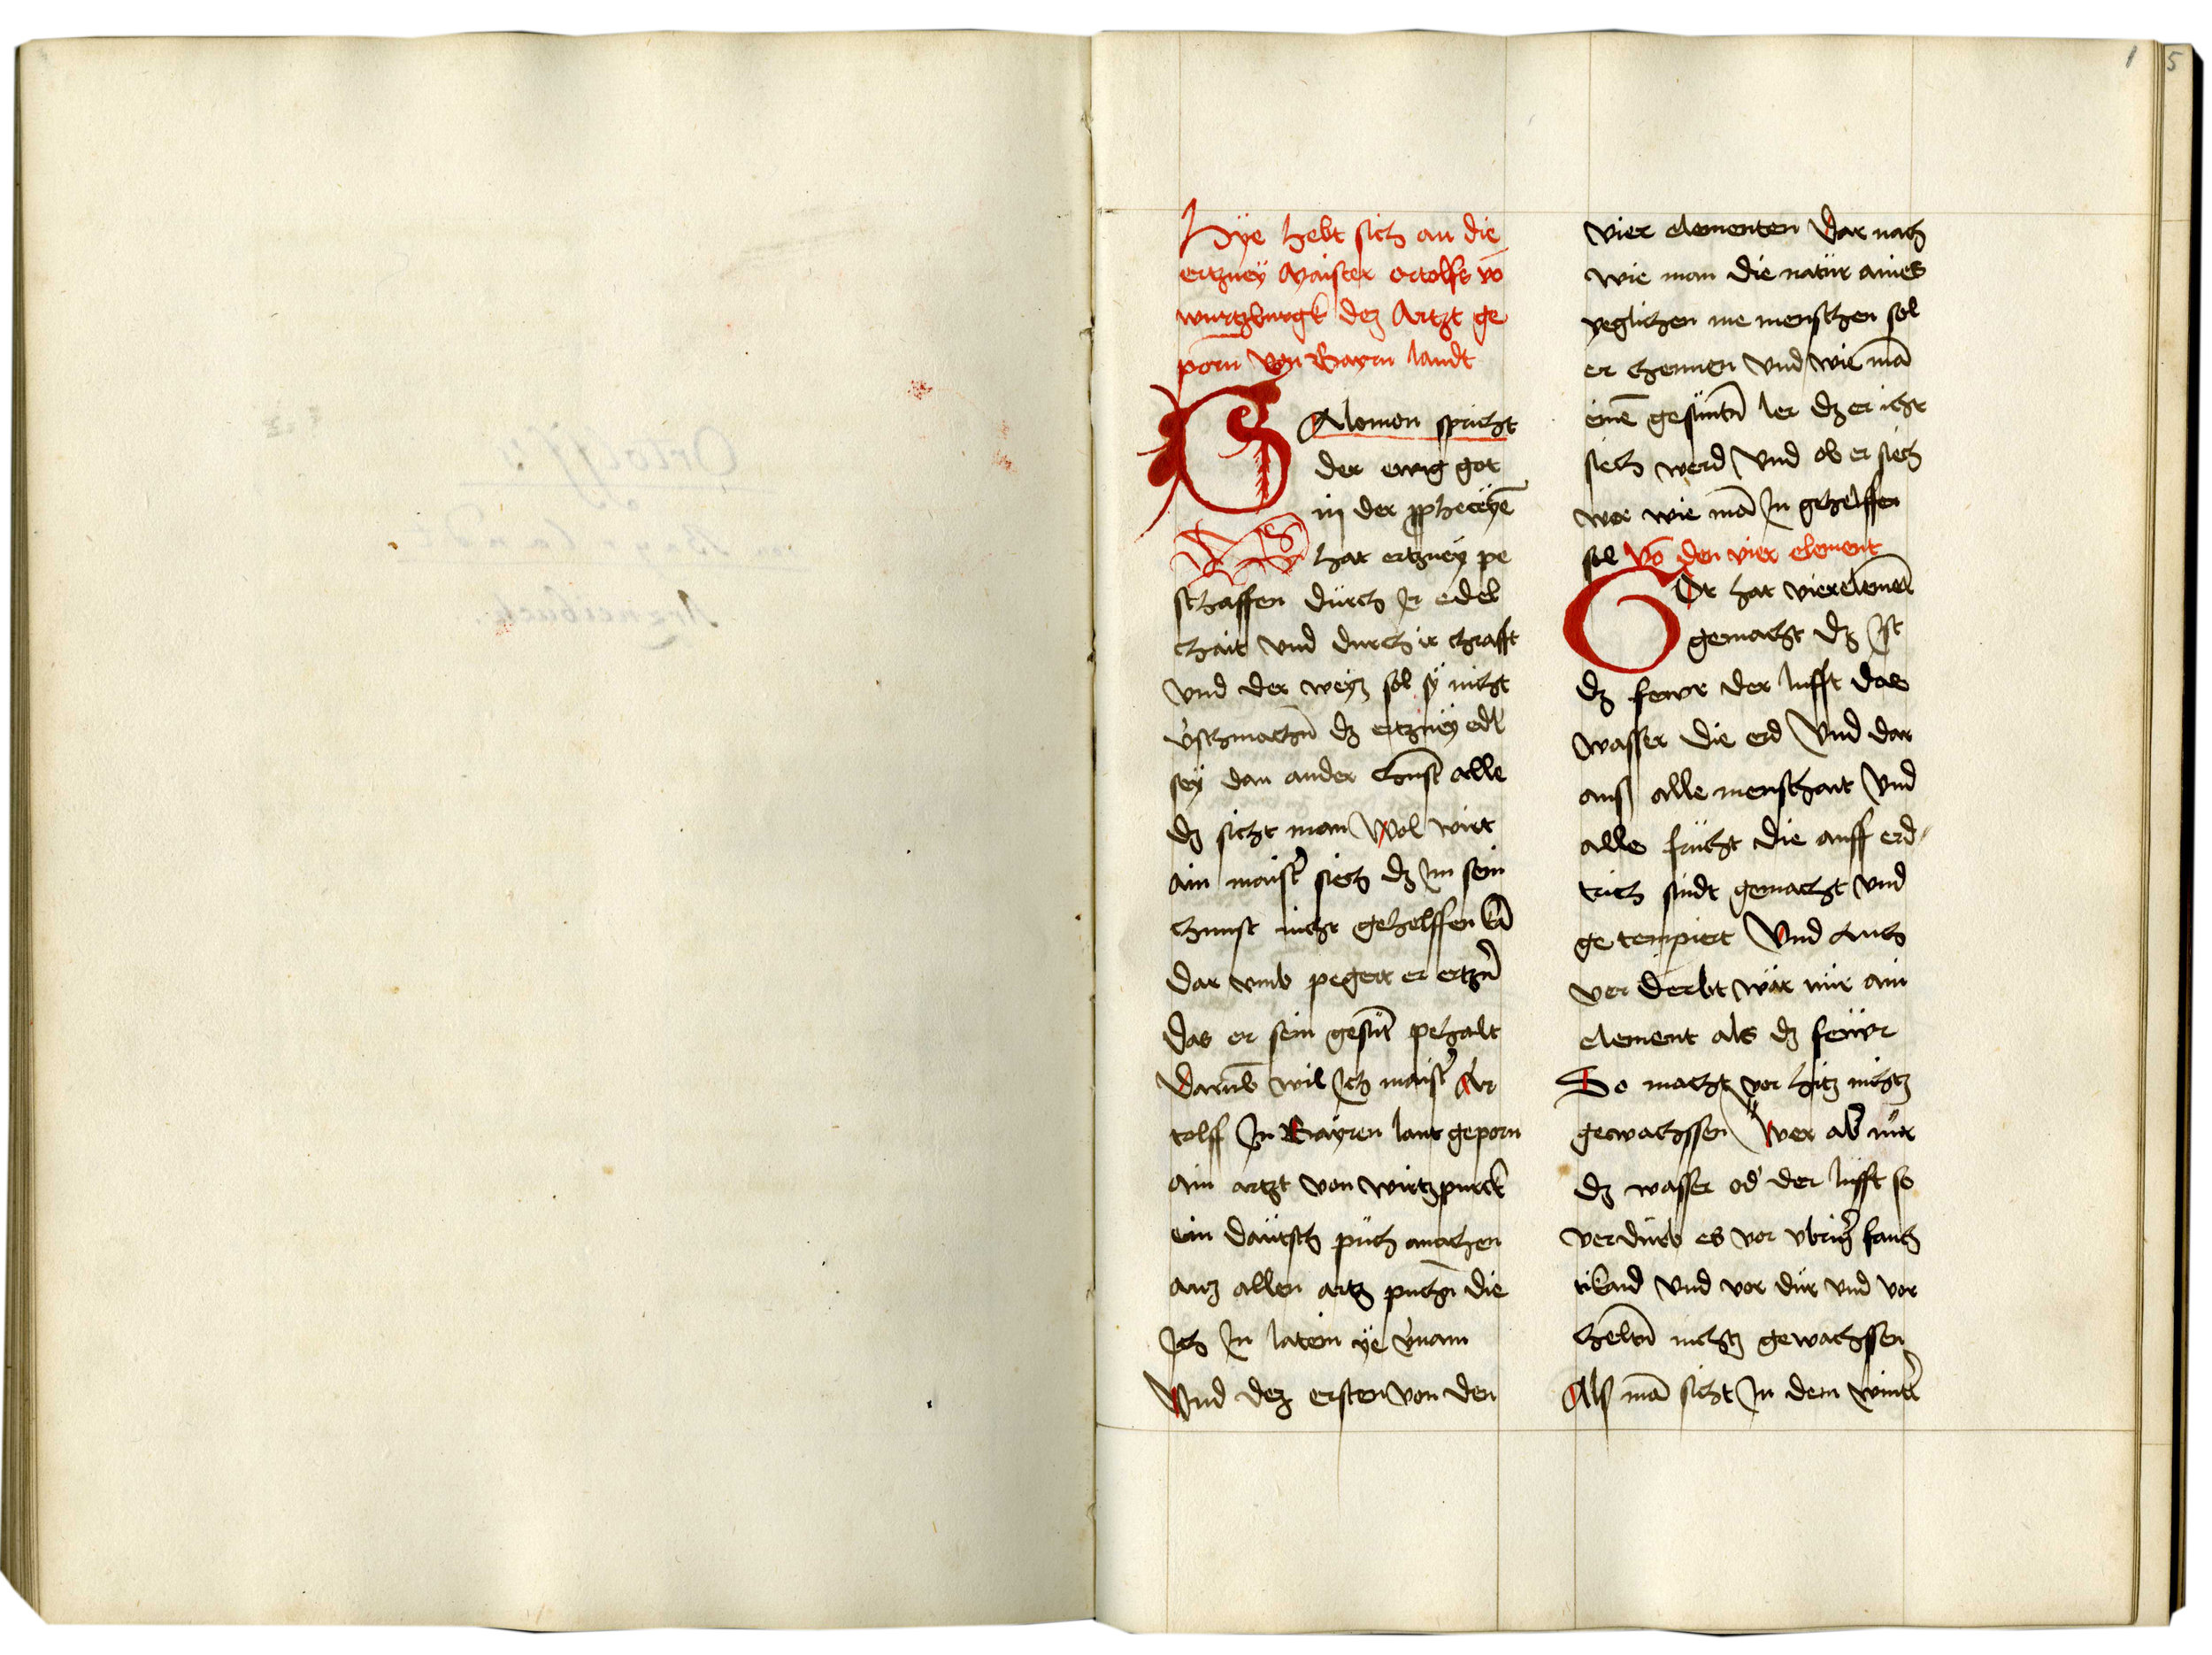 Hye hebt sich an die
ertzney Maister ortolfs võ
wurtzburgk dez Artzt ge
porn von Bayrn landt
SAlomon spricht
der ewig got
in der ppheceyẽ
hat ertzney pe
schaffen durch Jr edel
chait vnd durch ir chrafft
vnd der weyz sol sy nicht
v̉schmachñ dz ertzney edl
sey dan ander chunst alle
dz sicht man Wol wirt
ain maist̉ siech dz Jm sein
chunst nicht gehelffen kã
dar vmb pegert er ertzñ
das er sein gesũt pehalt
Darũb wil Jch maist̉ Or
tolff Jn Bayren lant geporn
ain artzt von wirtzpurck
ein däutsch puch machen
auz allen artz puchñ die
Jch Jn latein ye v̉nam
Vnd dez ersten von den
vier elementen Dar nach
wie man die natur aines
yeglichen me menschen sol
er chennen vnd wie mã
einẽ gesuntñ ler dz er icht
siech werd Vnd ob er siech
wer wie mã Jn gehelffen
sol Võ den vier element
GOt hat vier elemẽt
gemacht dz Jst
dz fewr der lufft das
wasser die erd Vnd dar
auss alle menschait Vnd
alle frucht die auff erd
trich sindt gemacht vnd
ge tempiert Vnd Auch
ver derbt wär nür ain
element als dz feẅr
So macht vor hitz nichtz
gewachssen Wer ab̉ nür
dz wasser od̉ der lufft so
verdürb es vor vbrig̉ feuch
tikaid vnd vor dür vnd vor
cheltñ nichtz gewachssen
Als mã sicht Jn dem wint̉
1
5